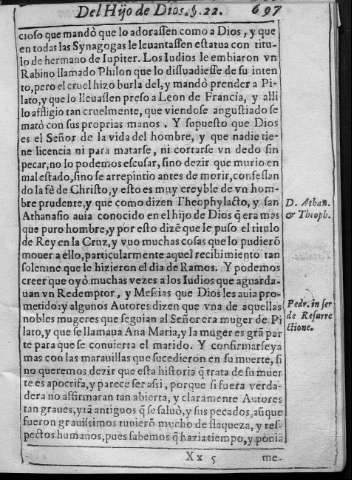 Del Hijo de Dios. §. 22. 697
cioso que mandò que lo adorassen como a Dios, y que
en todas las Synagogas le leuantassen estatua con titu-
lo de hermano de Iupiter. Los Iudios le embiaron vn
Rabino llamado Philon que lo dissuadiesse de su inten
to, pero el cruel hizo burla del, y mandò prender a Pi-
lato, y que lo lleuassen preso a Leon de Francia, y alli
lo affligio tan cruelmente, que viendose angustiado se
matò con sus proprias manos. Y supuesto que Dios
es el Señor de la vida del hombre, y que nadie tie-
ne licencia ni para matarse, ni cortarse vn dedo sin
pecar, no lo podemos escusar, sino dezir que murio en
mal estado, sino se arrepintio antes de morir, confessan
do la fè de Christo, y esto es muy creyble de vn hom-
bre prudente, y que como dizen Theophylacto, y san
D. Athan.
Athanasio auia conocido en el hijo de Dios q̃ era mas
& Theoph.
que puro hombre, y por esto dizẽ que le puso el titulo
de Rey en la Cruz, y vuo muchas cosas que lo pudierõ
mouer a ello, particularmente aquel recibimiento tan
solenne que le hizieron el dia de Ramos. Y podemos
creer que oyò muchas vezes a los Iudios que aguarda-
uan vn Redemptor, y Messias que Dios les auia pro-
metido: y algunos Autores dizen que vna de aquellas
Pedr. in ser
nobles mugeres que seguian al Señor era muger de Pi
de Resurre
lato, y que se llamaua Ana Maria, y la muger es grã par
ctione.
te para que se conuierta el marido. Y confirmarseya
mas con las marauillas que sucedieron en su muerte, si
no queremos dezir que esta historia q̃ trata de su muer
te es apocrifa, y parece ser assi, porque si fuera verda-
dera no affirmaran tan abierta, y claramente Autores
tan graues, y tã antiguos q̃ se saluò, y sus pecados, aũque
fueron grauissimos tuuierõ mucho de flaqueza, y res-
pectos humanos, pues sabemos q̃ hazia tiempo, y ponia
Xx 5 me-